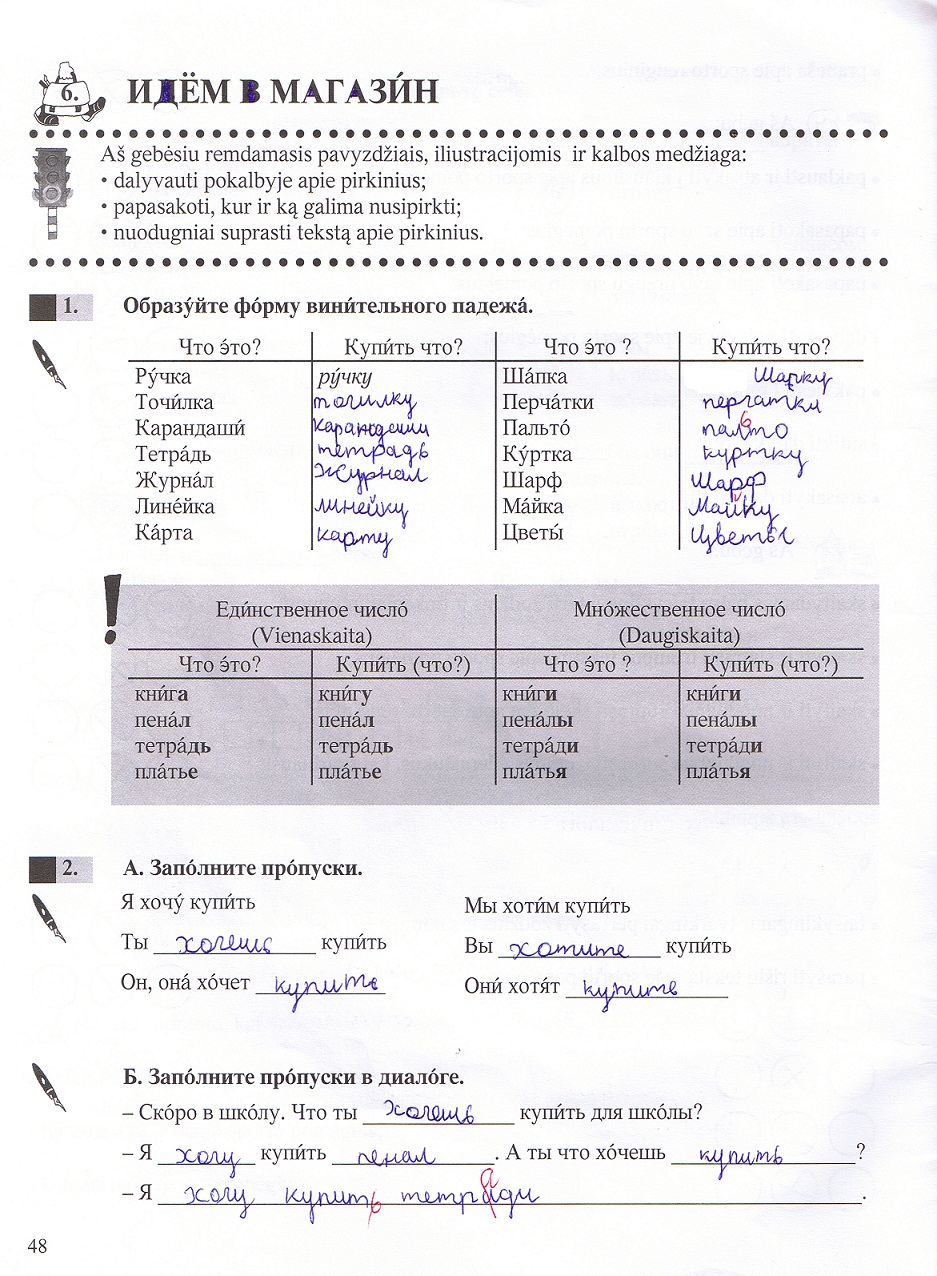 6. ИДЁМ В МАГАЗИ́Н
Aš gebėsiu remdamasis pavyzdžiais, iliustracijomis ir kalbos medžiaga:
• dalyvauti pokalbyje apie pirkinius;
• papasakoti, kur ir ką galima nusipirkti;
• nuodugniai suprasti tekstą apie pirkinius.
1. Образу́йте фо́рму вини́тельного падежа́.
Что э́то? Купи́ть что? Что э́то ? Купи́ть что?
Ру́чка ру́чку Ша́пка Шапку
Точи́лка точилку Перча́тки перчатки
Карандаши́ карандаши Пальто́ пальто
Тетра́дь тетрадь Ку́ртка куртку
Журна́л Журнал Шарф Шарф
Лине́йка линейку Ма́йка Майку
Ка́рта карту Цветы́ Цветы
! Еди́нственное число́ Мно́жественное число́
(Vienaskaita) (Daugiskaita)
Что э́то? Купи́ть (что?) Что э́то ? Купи́ть (что?)
кни́га кни́гу кни́ги кни́ги
пена́л пена́л пена́лы пена́лы
тетра́дь тетра́дь тетра́ди тетра́ди
пла́тье пла́тье пла́тья пла́тья
2. А. Запо́лните про́пуски.
Я хочу́ купи́ть Мы хоти́м купи́ть
Ты хочешь купи́ть Вы хотите купи́ть
Он, она́ хо́чет купить Они́ хотя́т купить
Б. Запо́лните про́пуски в диало́ге.
– Ско́ро в шко́лу. Что ты хочешь купи́ть для шко́лы?
– Я хочу купи́ть пенал. А ты что хо́чешь купить?
– Я хочу купить тетради.
48